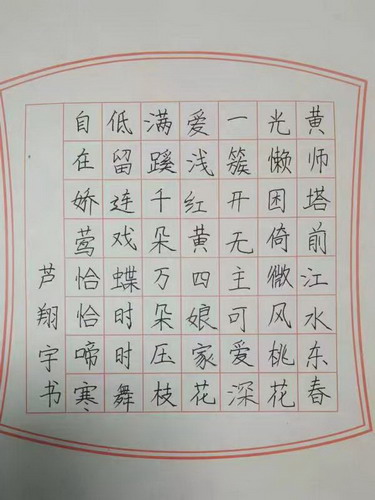 黄师塔前江水东春
光懒困倚微风桃花
一簇开无主可爱深
爱浅红黄四娘家花
满蹊千朵万朵压枝
低留连戏蝶时时舞
自在娇莺恰恰啼寒
芦翔宇书